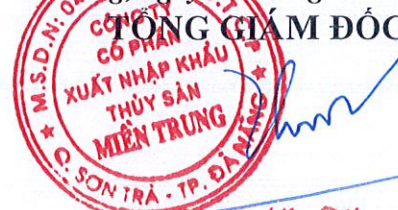 TỔNG GIÁM ĐỐC
M.S.D.N: 0
CÔNG
CỔ PHẦN
XUẤT NHẬP KHẨU
THỦY SẢN
MIỀN TRUNG
Q. SƠN TRÀ - TP. ĐÀ NẴNG